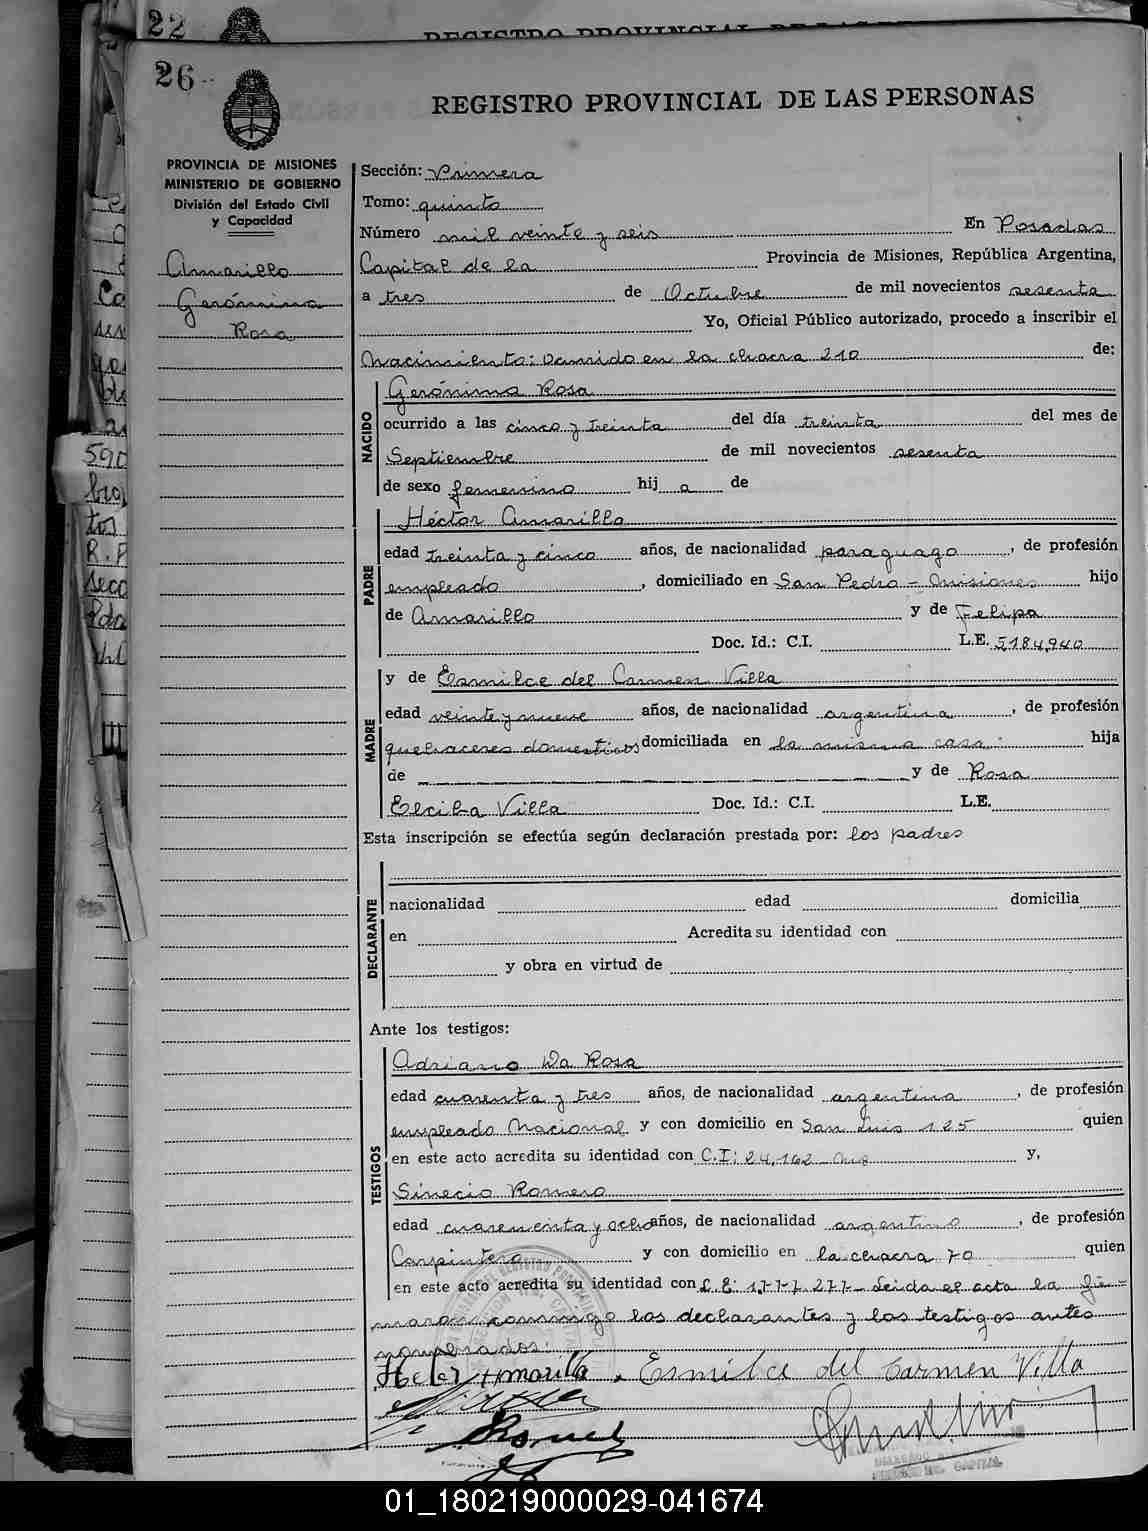 22
REGISTRO PROVINCIAL DE LAS
26
REGISTRO PROVINCIAL DE LAS PERSONAS
PROVINCIA DE MISIONES
MINISTERIO DE GOBIERNO
División del Estado Civil
y Capacidad
Amarillo
Gerónima
Rosa
Sección: Primera
Tomo: quinto
Número mil veinte y seis En Posadas
Capital de la Provincia de Misiones, República Argentina,
a tres de Octubre de mil novecientos sesenta
Yo, Oficial Público autorizado, procedo a inscribir el
Nacimiento: ocurrido en la chacra 210 de:
NACIDO
Gerónima Rosa
ocurrido a las cinco y treinta del día treinta del mes de
Septiembre de mil novecientos sesenta
de sexo femenino hij a de
PADRE
Héctor Amarillo
edad treinta y cinco años, de nacionalidad paraguayo, de profesión
empleado, domiciliado en San Pedro - Misiones hijo
de Amarillo y de Felipa
Doc. Id.: C.I. L.E. 5184,940
MADRE
y de Esmilce del Carmen Villa
edad veinte y nueve años, de nacionalidad argentina, de profesión
quehaceres domesticos domiciliada en la misma casa. hija
de y de Rosa
Elciba Villa Doc. Id.: C.I. L.E.
Esta inscripción se efectúa según declaración prestada por: los padres
DECLARANTE
nacionalidad edad domicilia
en Acredita su identidad con
y obra en virtud de
Ante los testigos:
TESTIGOS
Adriano Da Rosa
edad cuarenta y tres años, de nacionalidad argentina, de profesión
empleado Nacional y con domicilio en San Luis 125 quien
en este acto acredita su identidad con C.I: 24,162 y,
Sinecio Romero
edad cuarenta y ocho años, de nacionalidad argentino, de profesión
Carpintero y con domicilio en la chacra 70 quien
en este acto acredita su identidad con L.E: 1,777,277- Leida el acta la fir-
maron conmigo los declarantes y los testigos antes
nombrados:
Hector Amarilla. Esmilce del Carmen Villa
01_180219000029-041674